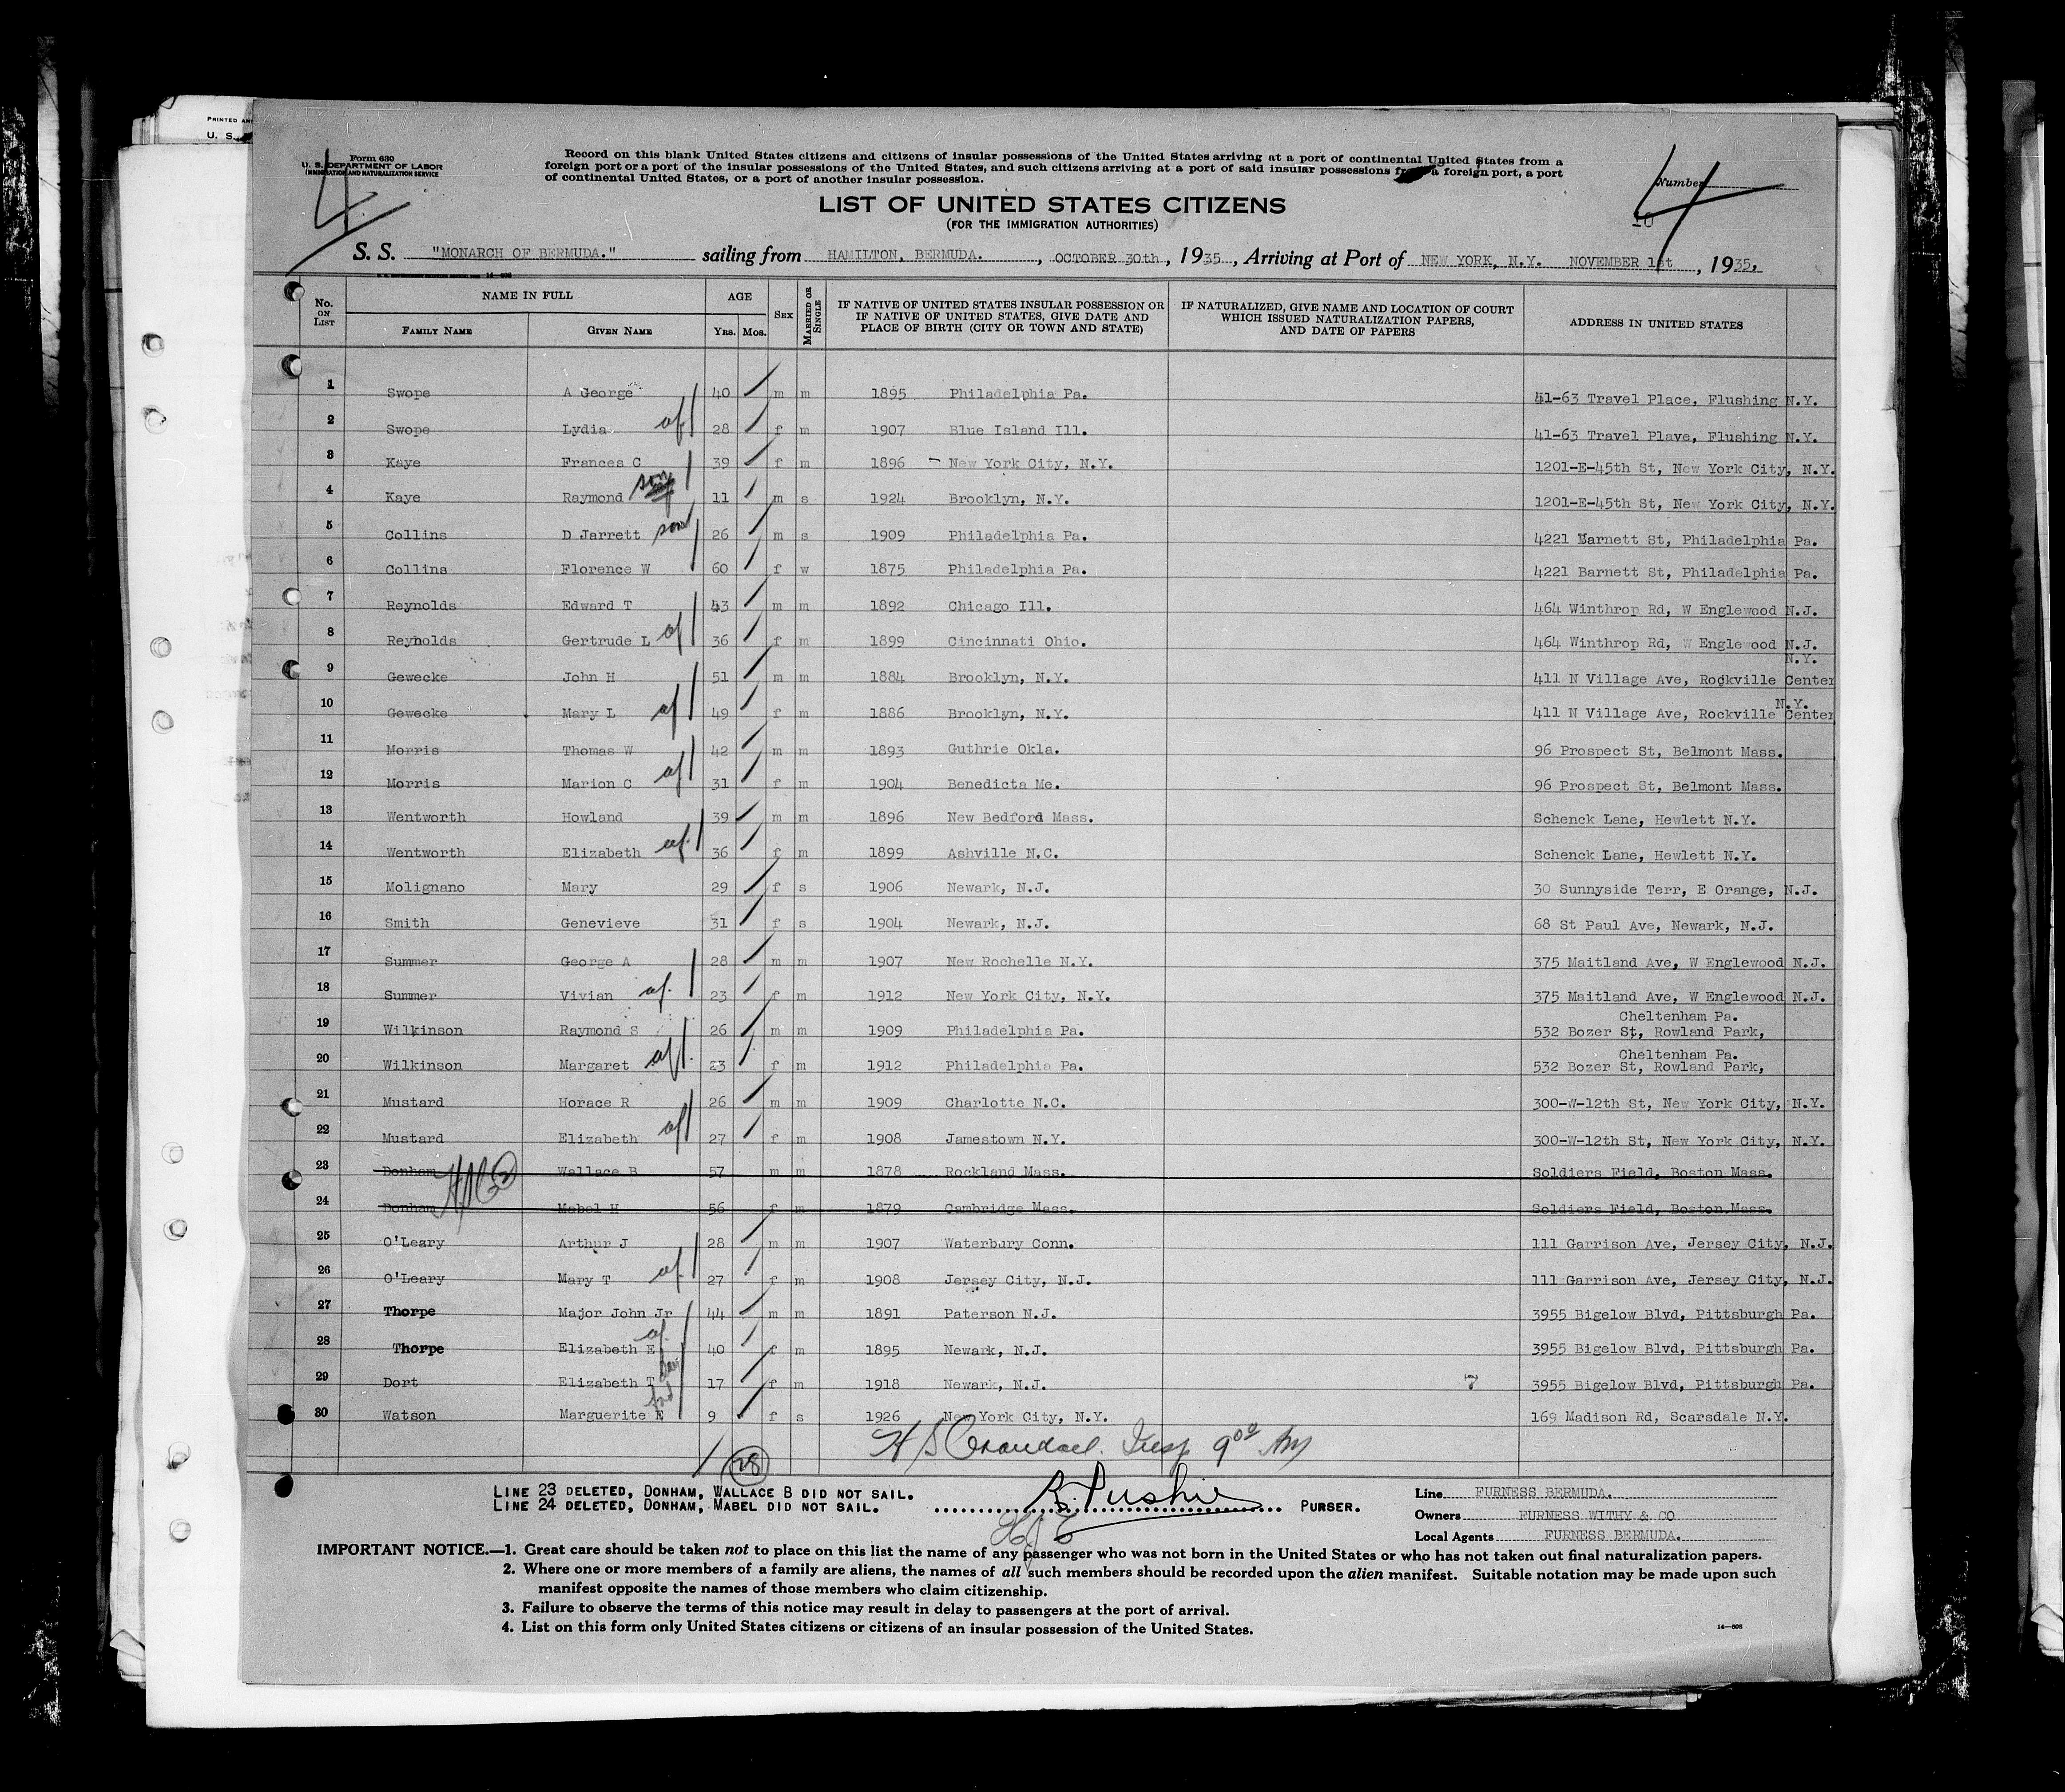 PRINTED AN
U. S.
Form 630
U. S. DEPARTMENT OF LABOR
IMMIGRATION AND NATURALIZATION SERVICE
4
Record on this blank United States citizens and citizens of insular possessions of the United States arriving at a port of continental United States from a
foreign port or a port of the insular possessions of the United States, and such citizens arriving at a port of said insular possessions from a foreign port, a port
of continental United States, or a port of another insular possession.
Number
4
10
LIST OF UNITED STATES CITIZENS
(FOR THE IMMIGRATION AUTHORITIES)
S. S. "MONARCH OF BERMUDA." sailing from HAMILTON, BERMUDA. , OCTOBER 30th , 1935 , Arriving at Port of NEW YORK, N.Y. NOVEMBER 1st , 1935,
14-608
No. ON LIST NAME IN FULL AGE SEX MARRIED OR SINGLE IF NATIVE OF UNITED STATES INSULAR POSSESSION OR IF NATIVE OF UNITED STATES, GIVE DATE AND PLACE OF BIRTH (CITY OR TOWN AND STATE) IF NATURALIZED, GIVE NAME AND LOCATION OF COURT WHICH ISSUED NATURALIZATION PAPERS, AND DATE OF PAPERS ADDRESS IN UNITED STATES
FAMILY NAME GIVEN NAME Yrs. Mos.
1 Swope A George 40 m m 1895 Philadelphia Pa. 41-63 Travel Place, Flushing N.Y.
2 Swope Lydia wf 28 f m 1907 Blue Island Ill. 41-63 Travel Plave, Flushing N.Y.
3 Kaye Frances C 39 f m 1896 New York City, N.Y. 1201-E-45th St, New York City, N.Y.
4 Kaye Raymond son 11 m s 1924 Brooklyn, N.Y. 1201-E-45th St, New York City, N.Y.
5 Collins D Jarrett son 26 m s 1909 Philadelphia Pa. 4221 Barnett St, Philadelphia Pa.
6 Collins Florence W 60 f w 1875 Philadelphia Pa. 4221 Barnett St, Philadelphia Pa.
7 Reynolds Edward T 43 m m 1892 Chicago Ill. 464 Winthrop Rd, W Englewood N.J.
8 Reynolds Gertrude L wf 36 f m 1899 Cincinnati Ohio. 464 Winthrop Rd, W Englewood N.J.
N.Y.
9 Gewecke John H 51 m m 1884 Brooklyn, N.Y. 411 N Village Ave, Rockville Center
N.Y.
10 Gewecke Mary L wf 49 f m 1886 Brooklyn, N.Y. 411 N Village Ave, Rockville Center
11 Morris Thomas W 42 m m 1893 Guthrie Okla. 96 Prospect St, Belmont Mass.
12 Morris Marion C wf 31 f m 1904 Benedicta Me. 96 Prospect St, Belmont Mass.
13 Wentworth Howland 39 m m 1896 New Bedford Mass. Schenck Lane, Hewlett N.Y.
14 Wentworth Elizabeth wf. 36 f m 1899 Ashville N.C. Schenck Lane, Hewlett N.Y.
15 Molignano Mary 29 f s 1906 Newark, N.J. 30 Sunnyside Terr, E Orange, N.J.
16 Smith Genevieve 31 f s 1904 Newark, N.J. 68 St Paul Ave, Newark, N.J.
17 Summer George A 28 m m 1907 New Rochelle N.Y. 375 Maitland Ave, W Englewood N.J.
18 Summer Vivian wf. 23 f m 1912 New York City, N.Y. 375 Maitland Ave, W Englewood N.J.
Cheltenham Pa.
19 Wilkinson Raymond S 26 m m 1909 Philadelphia Pa. 532 Bozer St, Rowland Park,
Cheltenham Pa.
20 Wilkinson Margaret wf 23 f m 1912 Philadelphia Pa. 532 Bozer St, Rowland Park,
21 Mustard Horace R 26 m m 1909 Charlotte N.C. 300-W-12th St, New York City, N.Y.
22 Mustard Elizabeth wf 27 f m 1908 Jamestown N.Y. 300-W-12th St, New York City, N.Y.
23 Donham Wallace B 57 m m 1878 Rockland Mass. Soldiers Field, Boston Mass.
24 Donham Mabel H 56 f m 1879 Cambridge Mass. Soldiers Field, Boston Mass.
25 O'Leary Arthur J 28 m m 1907 Waterbury Conn. 111 Garrison Ave, Jersey City, N.J.
26 O'Leary Mary T wf. 27 f m 1908 Jersey City, N.J. 111 Garrison Ave, Jersey City, N.J.
27 Thorpe Major John Jr 44 m m 1891 Paterson N.J. 3955 Bigelow Blvd, Pittsburgh Pa.
28 Thorpe Elizabeth E wf. 40 f m 1895 Newark, N.J. 3955 Bigelow Blvd, Pittsburgh Pa.
29 Dort Elizabeth T 17 f m 1918 Newark, N.J. 7 3955 Bigelow Blvd, Pittsburgh Pa.
30 Watson Marguerite E 9 f s 1926 New York City, N.Y. 169 Madison Rd, Scarsdale N.Y.
H S Crandall. Insp 9 00 Am
28
LINE 23 DELETED, DONHAM, WALLACE B DID NOT SAIL.
LINE 24 DELETED, DONHAM, MABEL DID NOT SAIL.
R. Pushie PURSER.
Line FURNESS BERMUDA.
Owners FURNESS WITHY & CO
Local Agents FURNESS BERMUDA.
IMPORTANT NOTICE.—1. Great care should be taken not to place on this list the name of any passenger who was not born in the United States or who has not taken out final naturalization papers.
2. Where one or more members of a family are aliens, the names of all such members should be recorded upon the alien manifest. Suitable notation may be made upon such
manifest opposite the names of those members who claim citizenship.
3. Failure to observe the terms of this notice may result in delay to passengers at the port of arrival.
4. List on this form only United States citizens or citizens of an insular possession of the United States.
14—608